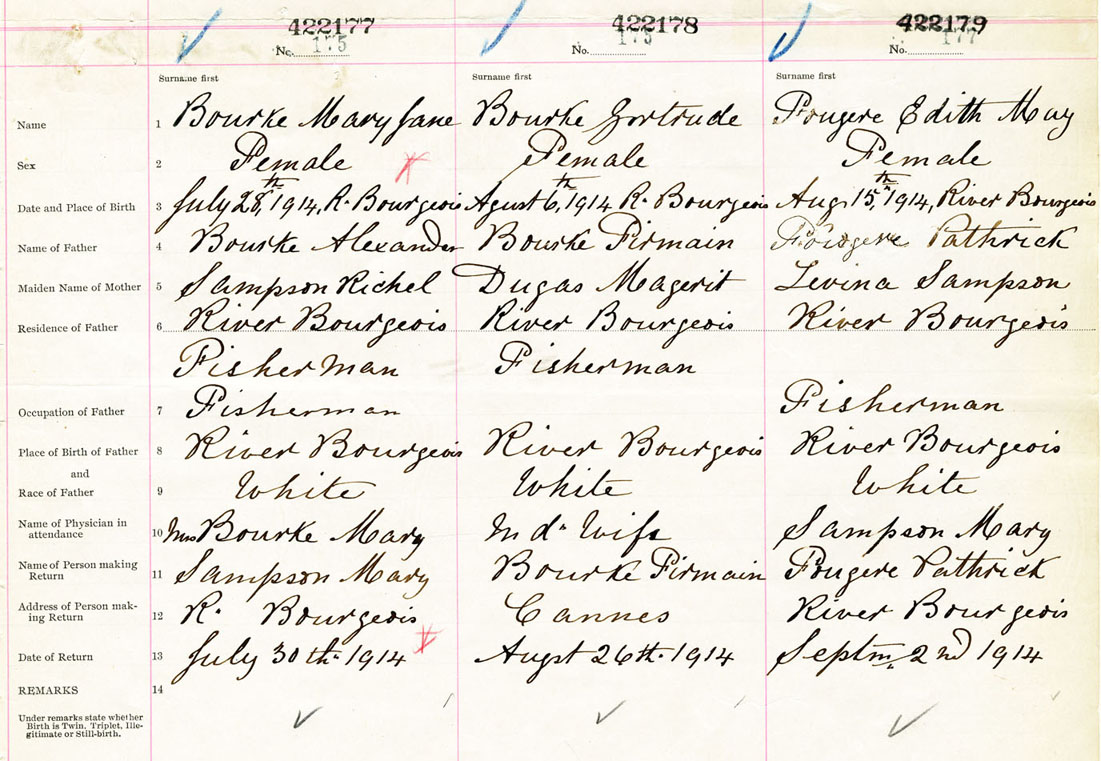 422177 422178 422179
No. 175 No. 175 No. 177
Surname first Surname first Surname first
Name 1 Bourke Mary Jane Bourke Gertrude Fougere Edith May
Sex 2 Female Female Female
Date and Place of Birth 3 July 28th, 1914, R. Bourgeois Agust 6th, 1914 R. Bourgeois Aug 15th, 1914, River Bourgeois
Name of Father 4 Bourke Alexander Bourke Firmain Fougere Pathrick
Maiden Name of Mother 5 Sampson Richel Dugas Magerit Levina Sampson
Residence of Father 6 River Bourgeois River Bourgeois River Bourgeois
Fisherman Fisherman
Occupation of Father 7 Fisherman Fisherman
Place of Birth of Father 8 River Bourgeois River Bourgeois River Bourgeois
and
Race of Father 9 White White White
Name of Physician in
attendance 10 Mrs Bourke Mary Md" Wife Sampson Mary
Name of Person making
Return 11 Sampson Mary Bourke Firmain Fougere Pathrick
Address of Person mak-
ing Return 12 R. Bourgeois Cannes River Bourgeois
Date of Return 13 July 30th. 1914 Augst 26th. 1914 Septm. 2nd 1914
REMARKS 14
Under remarks state whether
Birth is Twin, Triplet, Ille-
gitimate or Still-birth.